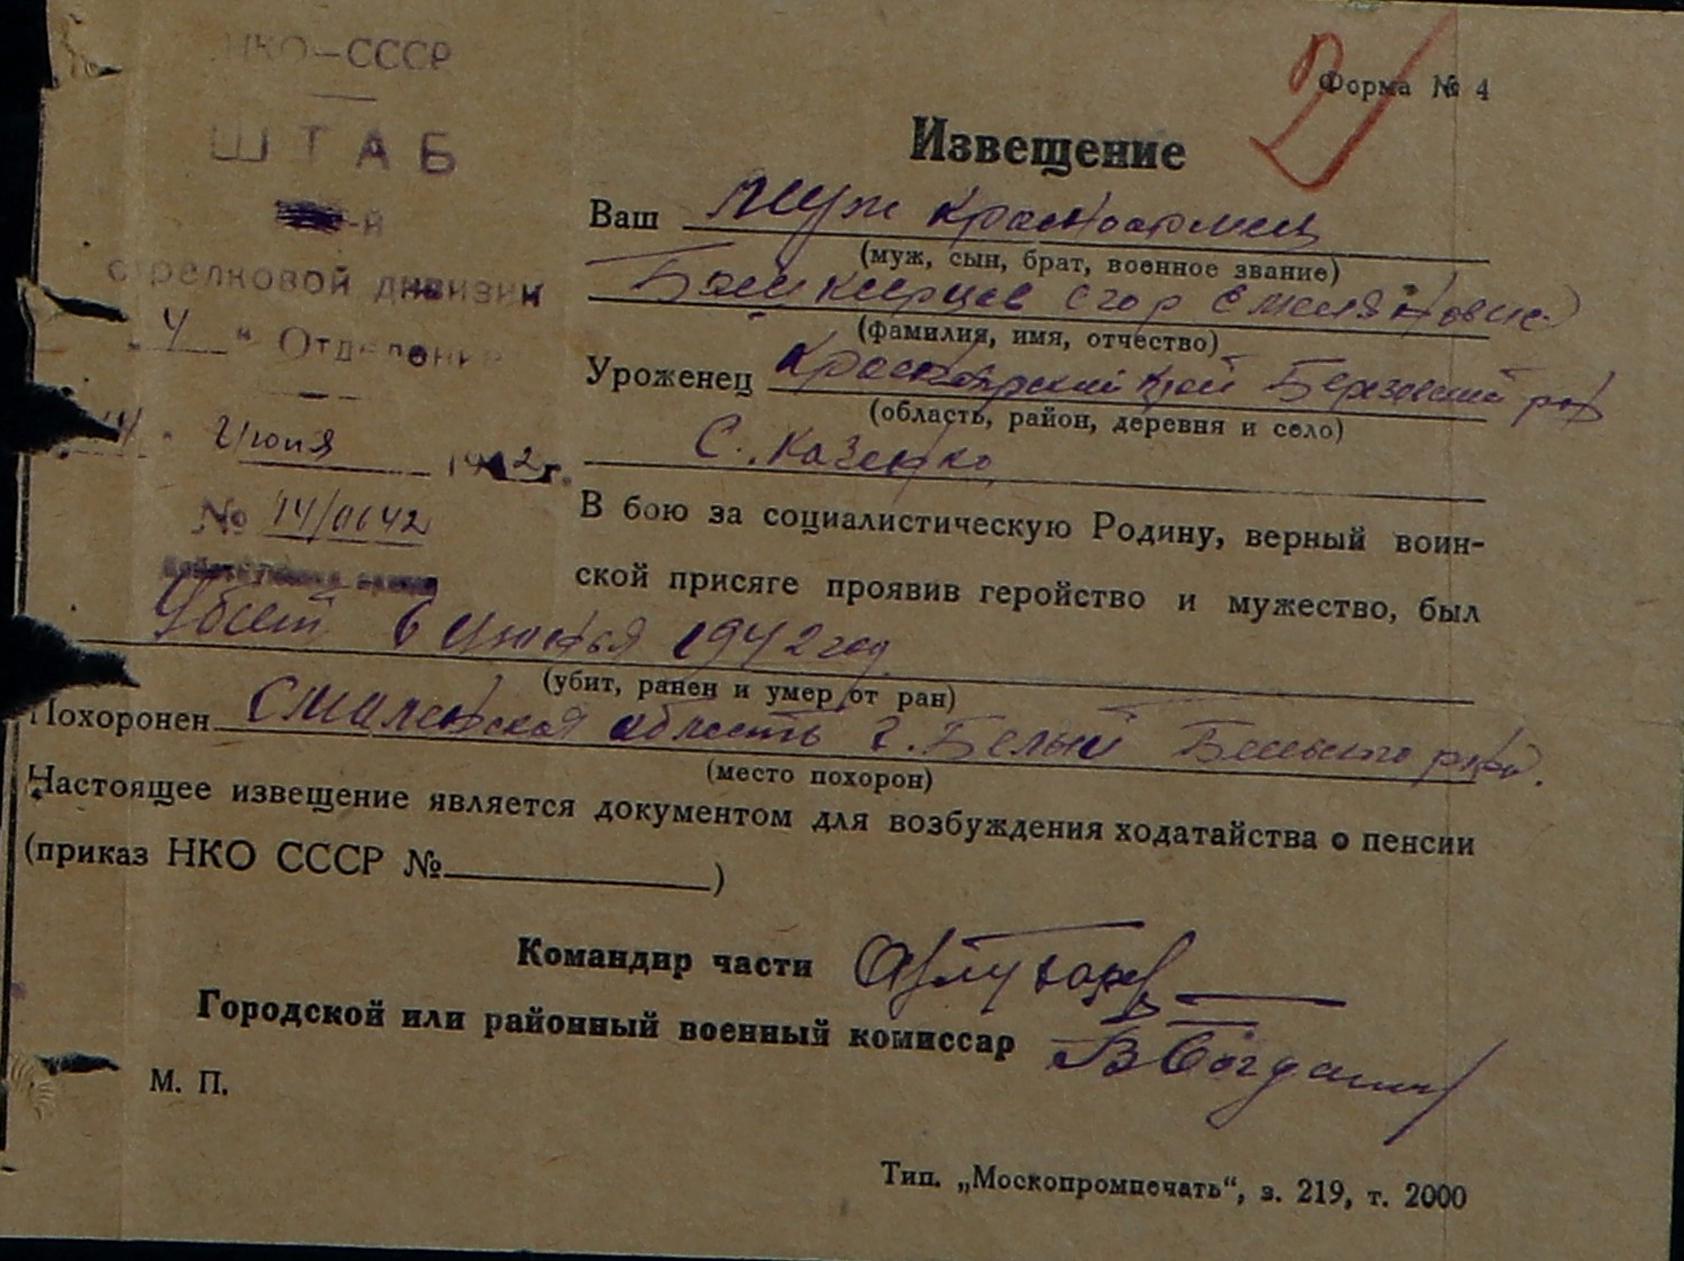 НКО-СССР
Форма № 4
ШТАБ
Извещение
-й
Ваш муж красноармеец
(муж, сын, брат, военное звание)
стрелковой дивизии
Башкирцев Егор Емеляновиč
(фамилия, имя, отчество)
„4“ Отделение
Уроженец Красноярский край Березовский
(область, район, деревня и село)
Июля 1942г.
С.
№ 14/0642
В бою за социалистическую Родину, верный воин-
ской присяге проявив геройство и мужество, был
Убит 6 Июня 1942 год
(убит, ранен и умер от ран)
Похоронен Смаленская область г. Белый Бельского
(место похорон)
Настоящее извещение является документом для возбуждения ходатайства о пенсии
(приказ НКО СССР №)
Командир части
Городской или районный военный комиссар
М. П.
Тип. „Москопромпечать“, з. 219, т. 2000